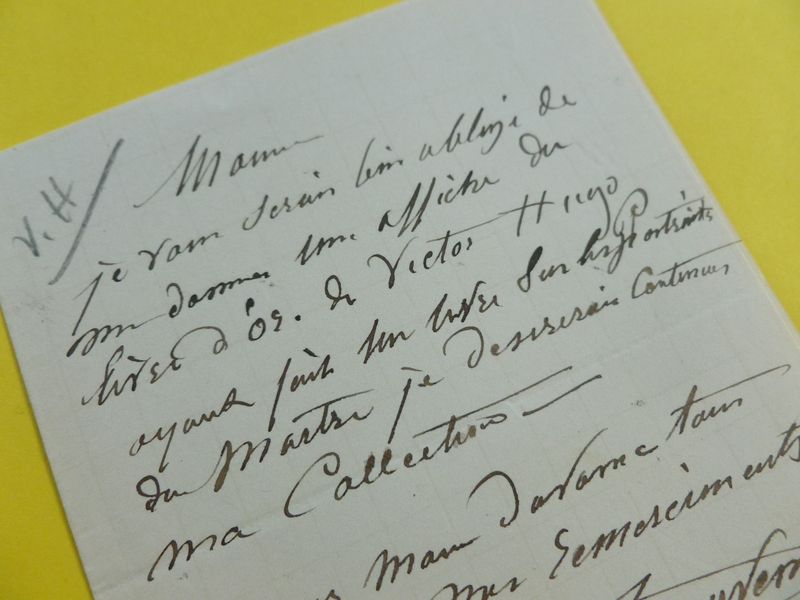 V.H
Monsieur
je vous serais bien obligé de
me donner une affiche du
livre d'Or. de Victor Hugo
ayant fait un livre sur les Portraits
du Maitre je desirerais Continuer
ma Collection
Mon d'avance tous
mes remerciments